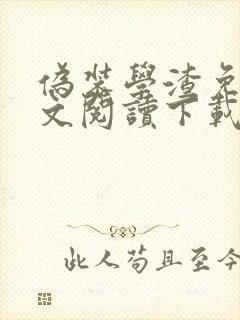 偽裝學渣免
文閱讀下載
此人苟且至今